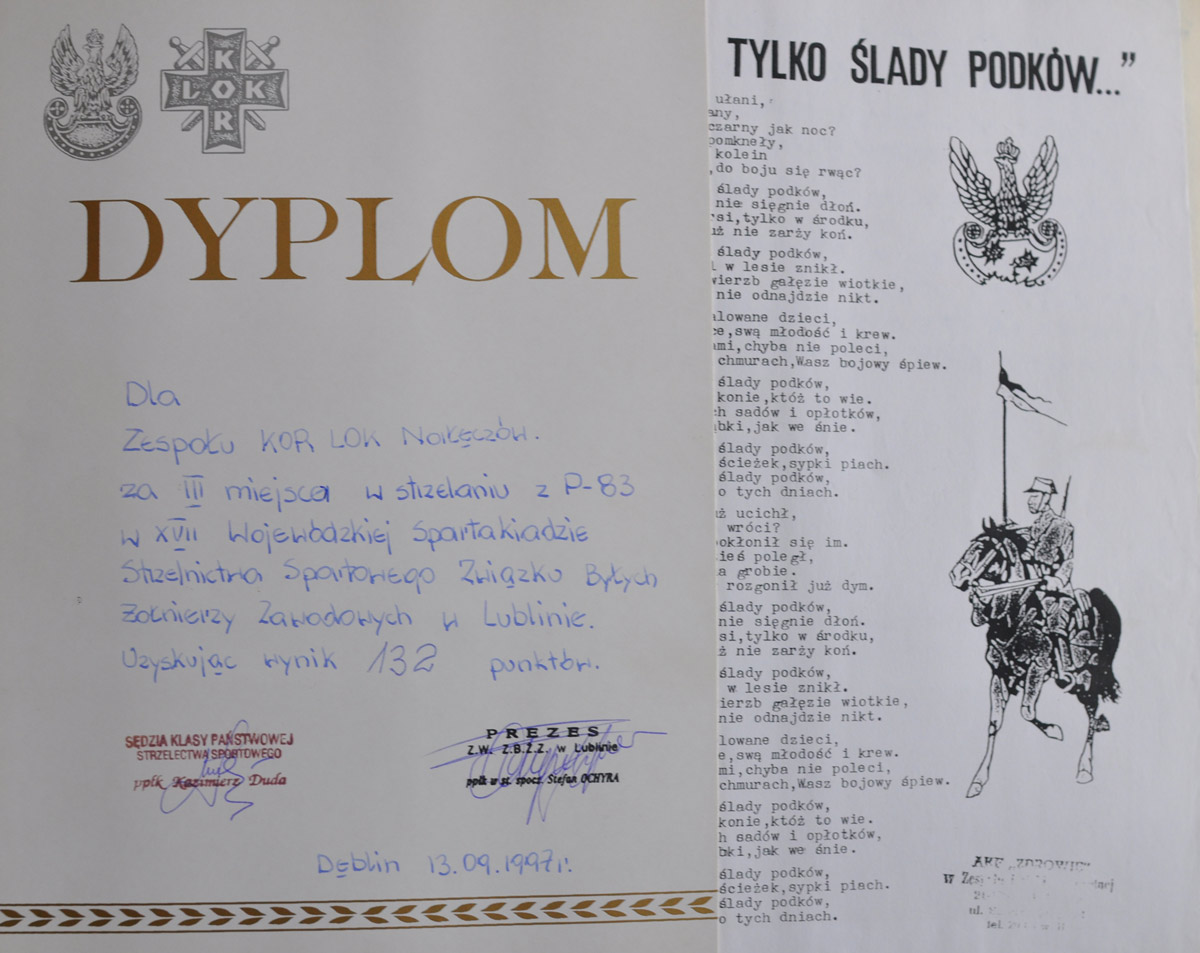 K
LOK
R
DYPLOM
Dla
Zespołu KOR LOK Nałęczów.
za III miejsca w strzelaniu z P-83
w XVII Wojewódzkiej Spartakiadzie
Strzelnictwa Sportowego Związku Byłych
Żołnierzy Zawodowych w Lublinie.
Uzyskując wynik 132 punktów.
SĘDZIA KLASY PAŃSTWOWEJ
STRZELECTWA SPORTOWEGO
ppłk Kazimierz Duda
PREZES
Z.W. Z.B.Ż.Z. w Lublinie
ppłk w st. spocz. Stefan OCHYRA
Dęblin 13.09.1997r.
TYLKO ŚLADY PODKÓW..."
ułani,
any,
czarny jak noc?
pomknęły,
kolein
,do boju się rwąc?
ślady podków,
nie sięgnie dłoń.
si,tylko w środku,
uż nie zarży koń.
ślady podków,
w lesie znikł.
wierzb gałęzie wiotkie,
nie odnajdzie nikt.
alowane dzieci,
ce,swą młodość i krew.
ami,chyba nie poleci,
chmurach,Wasz bojowy śpiew.
ślady podków,
konie,któż to wie.
ch sadów i opłotków,
bki,jak we śnie.
ślady podków,
ścieżek,sypki piach.
ślady podków,
o tych dniach.
uż ucichł,
wróci?
okłonił się im.
ieś poległ,
a grobie.
rozgonił już dym.
ślady podków,
nie sięgnie dłoń.
si,tylko w środku,
ż nie zarży koń.
ślady podków,
w lesie znikł.
ierzb gałęzie wiotkie,
nie odnajdzie nikt.
lowane dzieci,
e,swą młodość i krew.
mi,chyba nie poleci,
chmurach,Wasz bojowy śpiew.
ślady podków,
konie,któż to wie.
h sadów i opłotków,
bki,jak we śnie.
ślady podków,
ścieżek,sypki piach.
ślady podków,
o tych dniach.
W
ul.
tel.